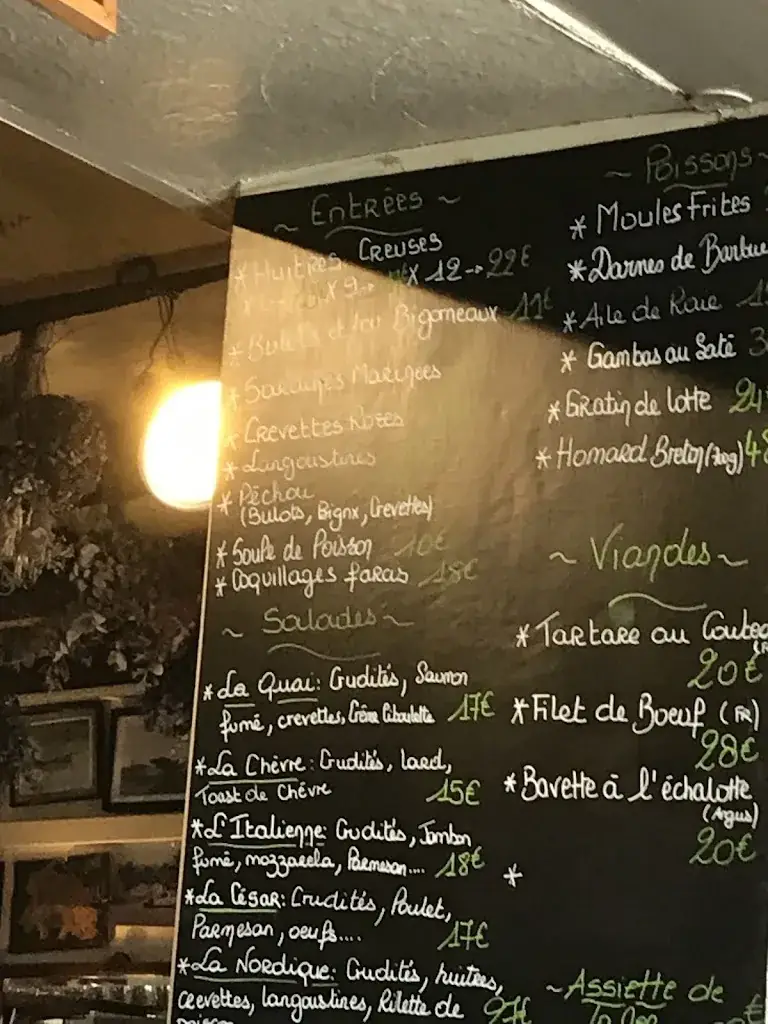 ~ Entrées ~
* Huîtres Creuses
X 9→ X 12→22€
* Bulots et/ou Bigorneaux 11€
* Sardines Marinées
* Crevettes Roses
* Langoustines
* Pêchou
(Bulots, Bignx, Crevettes)
* Soupe de Poisson 10€
* Coquillages farcis 18€
~ Salades ~
* La Quai: Crudités, Saumon
fumé, crevettes, Crème Ciboulette 17€
* La Chèvre: Crudités, lard,
Toast de Chèvre 15€
* L'Italienne: Crudités, Jambon
fumé, mozzarela, Parmesan.... 18€
* La César: Crudités, Poulet,
Parmesan, oeufs.... 17€
* La Nordique: Crudités, huitres,
crevettes, langoustines, Rilette de
~ Poissons ~
* Moules Frites
* Darnes de Barbue
* Aile de Raie
* Gambas au Saté
* Gratin de lotte 24
* Homard Breton 48
~ Viandes ~
* Tartare au Couteau
20€
* Filet de Boeuf (FR)
28€
* Bavette à l'échalotte
(Angus)
20€
*
~ Assiette de